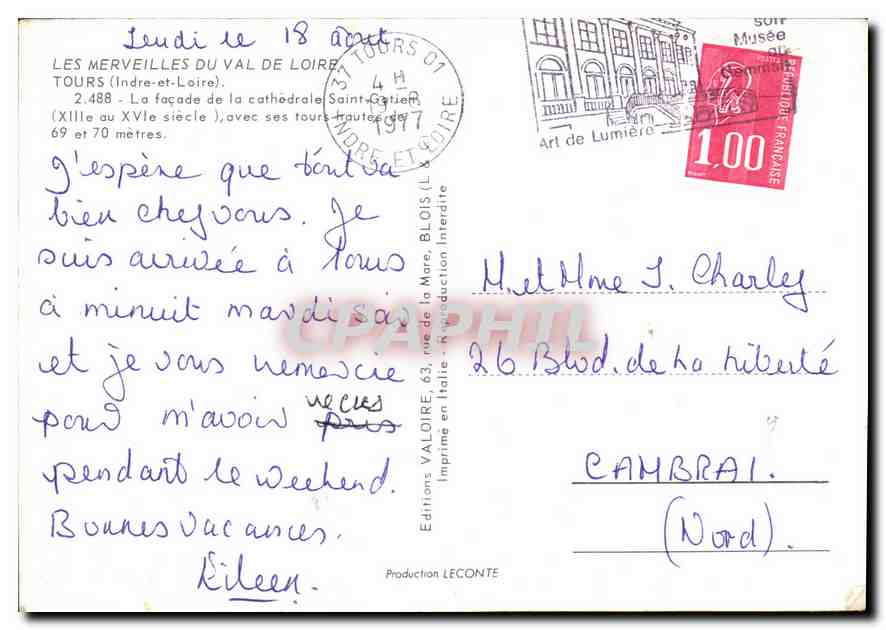 Jeudi le 18 août
LES MERVEILLES DU VAL DE LOIRE
TOURS (Indre-et-Loire).
2.488 - La façade de la cathédrale Saint-Gatien
(XIIIe au XVIe siècle), avec ses tours hautes de
69 et 70 mètres.
J'espère que tout va
bien chez vous. Je
suis arrivée à Tours
à minuit mardi soir
et je vous remercie
pour m'avoir reçus
pris
pendant le weekend.
Bonnes vacances.
Eileen.
37 TOURS 01
4 H
19-8
1977
INDRE ET LOIRE
soir
Musée
du
Gemmail
Art de Lumière
REPUBLIQUE FRANÇAISE
POSTES
1,00
Editions VALOIRE, 63, rue de la Mare, BLOIS (L &
Imprimé en Italie - Reproduction Interdite
M. et Mme J. Charley
26 Blvd. de La Liberté
CAMBRAI.
(Nord).
Production LECONTE
CPAPHIL